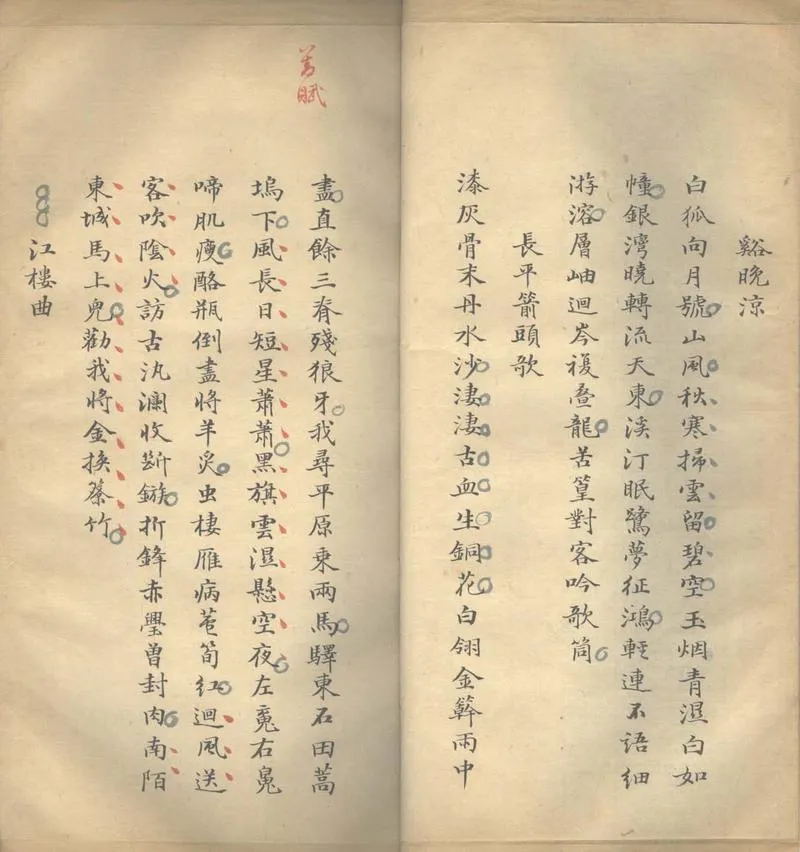 谿晚涼
白狐向月號山風秋寒掃雲留碧空玉烟青濕白如
幢銀灣曉轉流天東溪汀眠鷺夢征鴻輕連不語細
游溶層岫迴岑複疊龍苦篁對客吟歌筒
長平箭頭歌
漆灰骨末丹水沙淒淒古血生銅花白翎金簳雨中
盡直餘三脊殘狼牙我尋平原乘兩馬驛東石田蒿
塢下風長日短星蕭蕭黑旗雲濕懸空夜左䰟右䰟
啼肌瘦酪瓶倒盡將羊炙虫棲雁病蘆筍紅迴風送
客吹陰火訪古汍瀾收斷鏃折鋒赤璺曾封肉南陌
東城馬上兒勸我將金換簝竹
江樓曲